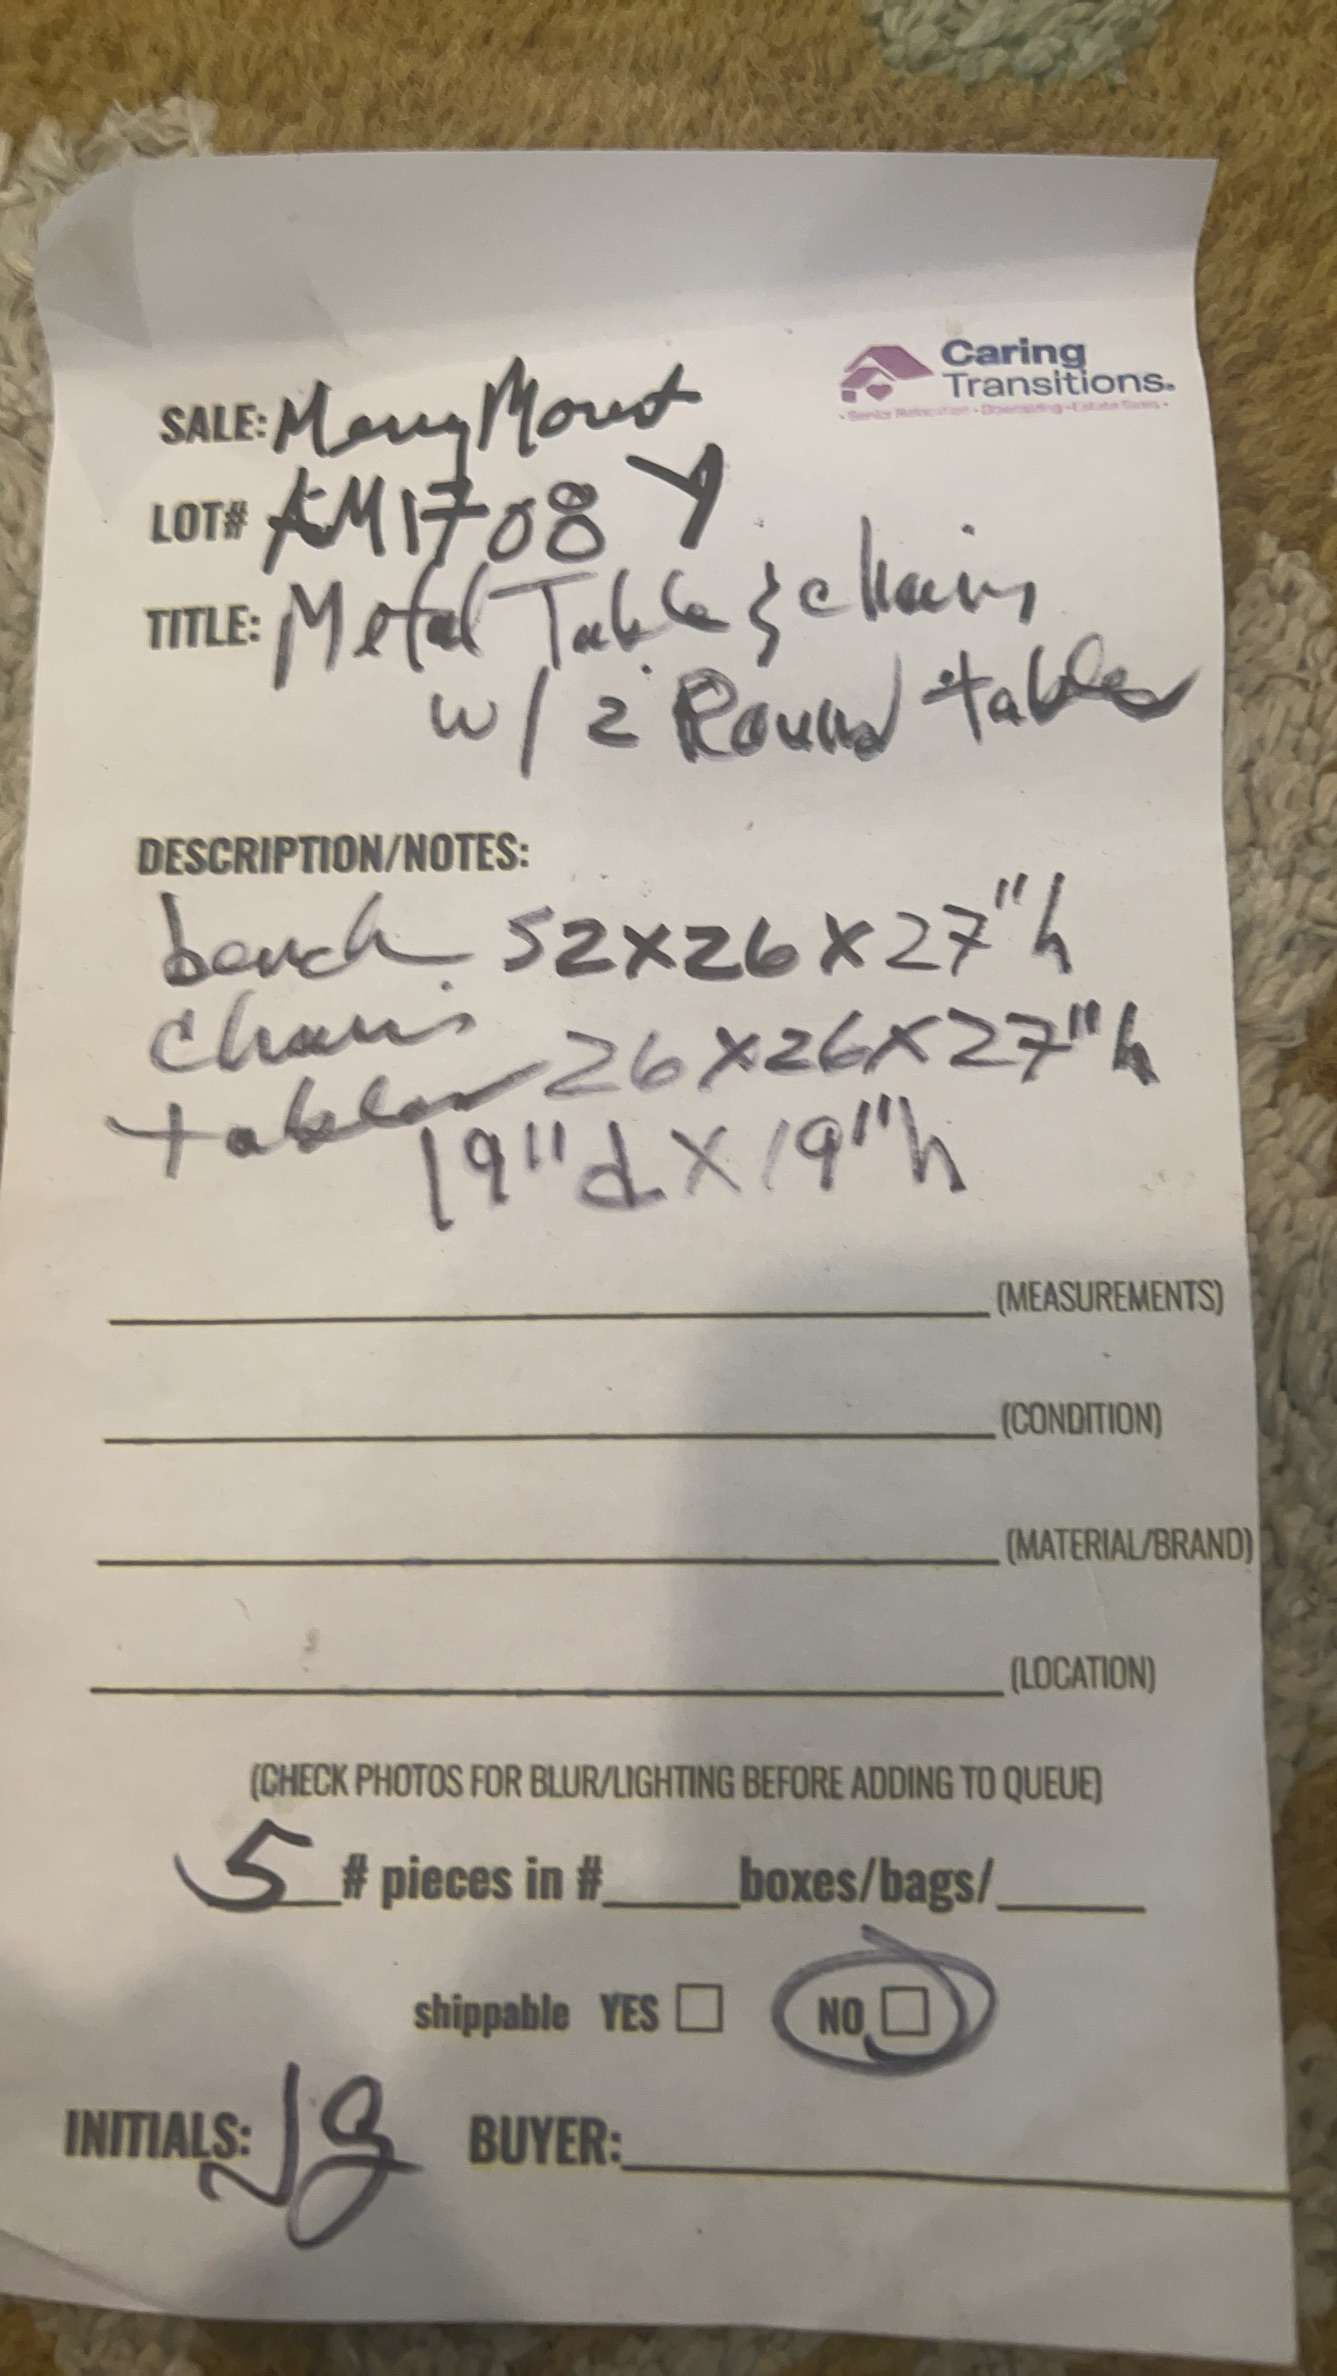 Caring
Transitions.
• Senior Relocation • Downsizing • Estate Sales •
SALE: MerryMount
LOT# AM1708 Y
TITLE: Metal Table & chairs
w/ 2 Round tables
DESCRIPTION/NOTES:
bench 52x26x27"h
chairs 26x26x27"h
tables 19"d x 19"h
(MEASUREMENTS)
(CONDITION)
(MATERIAL/BRAND)
(LOCATION)
(CHECK PHOTOS FOR BLUR/LIGHTING BEFORE ADDING TO QUEUE)
5 # pieces in #_____boxes/bags/_____
shippable YES ☐ NO ☐
INITIALS: Jg BUYER: